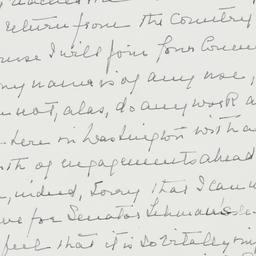 return from the Country
I will join
my name is of any use,
not, alas, do any work
here in Washington with a
of engagements ahead
indeed, sorry that I can
for Senator Lehman's
feel that it is so vitally